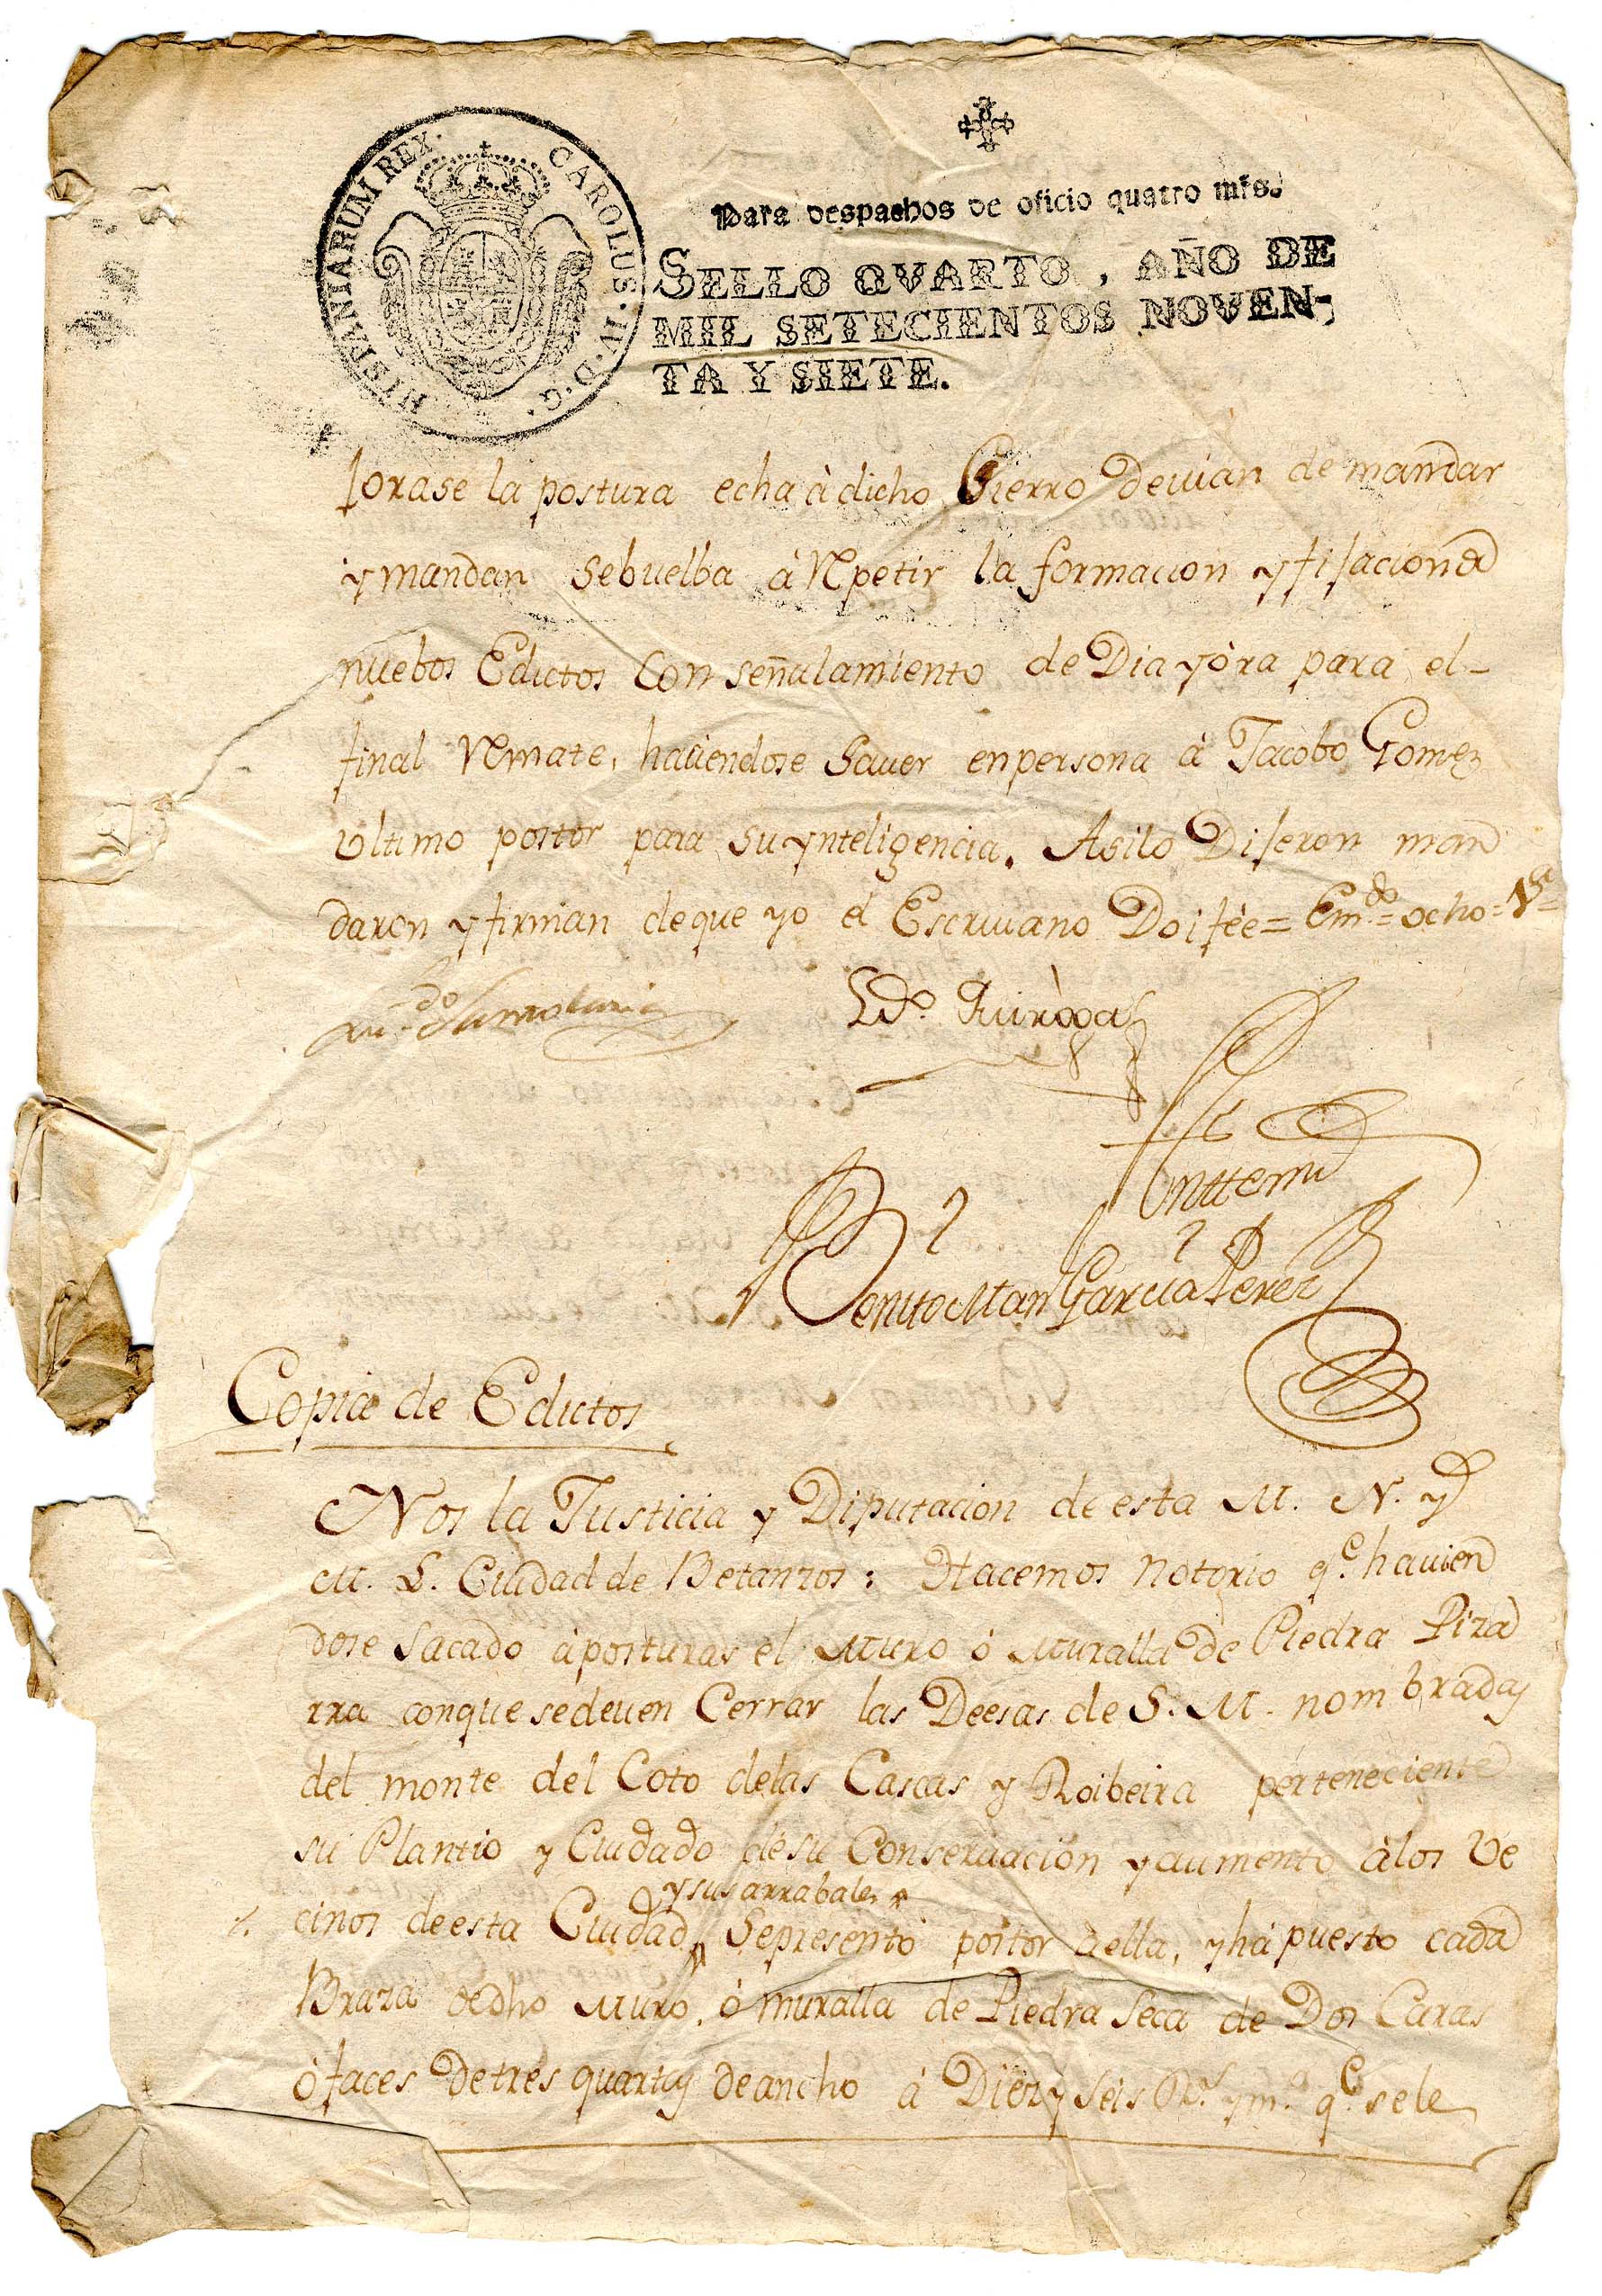 HISPANIARUM REX. CAROLUS. IV. D. G.
Para despachos de oficio quatro mrs.
SELLO QVARTO, AÑO DE
MIL SETECIENTOS NOVEN-
TA Y SIETE.
jorase la postura echa à dicho Cierro Devian de mandar
y mandan Sebuelba à Repetir la formacion y fijacion de
nuebos Edictos con señalamiento de Dia y òra para el-
final Remate, haciendose Saver en persona à Jacobo Gomez
ultimo postor para su ynteligencia. Asilo Dijeron man
daron y firman de que yo el Escrivano Doi fée = Em.do = ocho =
Ldo. Quiròga
Antte mi
Benito Man Garcia Perez
Copia de Edictos
Nos la Justicia y Diputacion de esta M. N. y
M. L. Ciudad de Betanzos: Hacemos notorio q.e havien
dose Sacado à posturas el Muro ó Muralla de Piedra Piza
rra conque se deven Cerrar las Deesas de S. M. nombradas
del monte del Coto delas Cascas y Roibeira perteneciente
su Plantio y Ciudado de su Conservacion y aumento àlos Ve
y sus arrabales
cinos de esta Ciudad, Sepresentó postor à ella, y há puesto cada
Braza de dho Muro, ó muralla de Piedra Seca de Dos Caras
ó faces De tres quartas de ancho à Diez y seis Rs. y m.o q.e se le